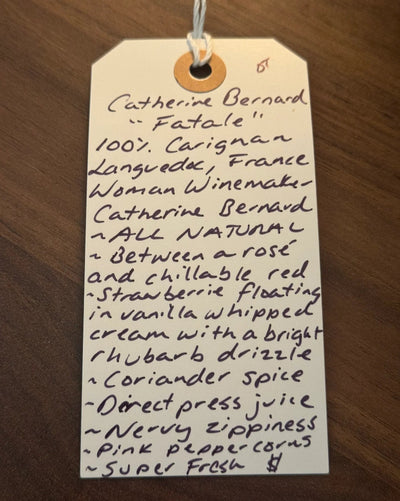 DT
Catherine Bernard
"Fatale"
100% Carignan
Languedoc, France
Woman Winemaker
Catherine Bernard
~ ALL NATURAL
~ Between a rosé
and chillable red
~Strawberrie floating
in vanilla whipped
cream with a bright
rhubarb drizzle
~ Coriander spice
~Direct press juice
~ Nervy zippiness
~Pink peppercorns
~ Super Fresh $